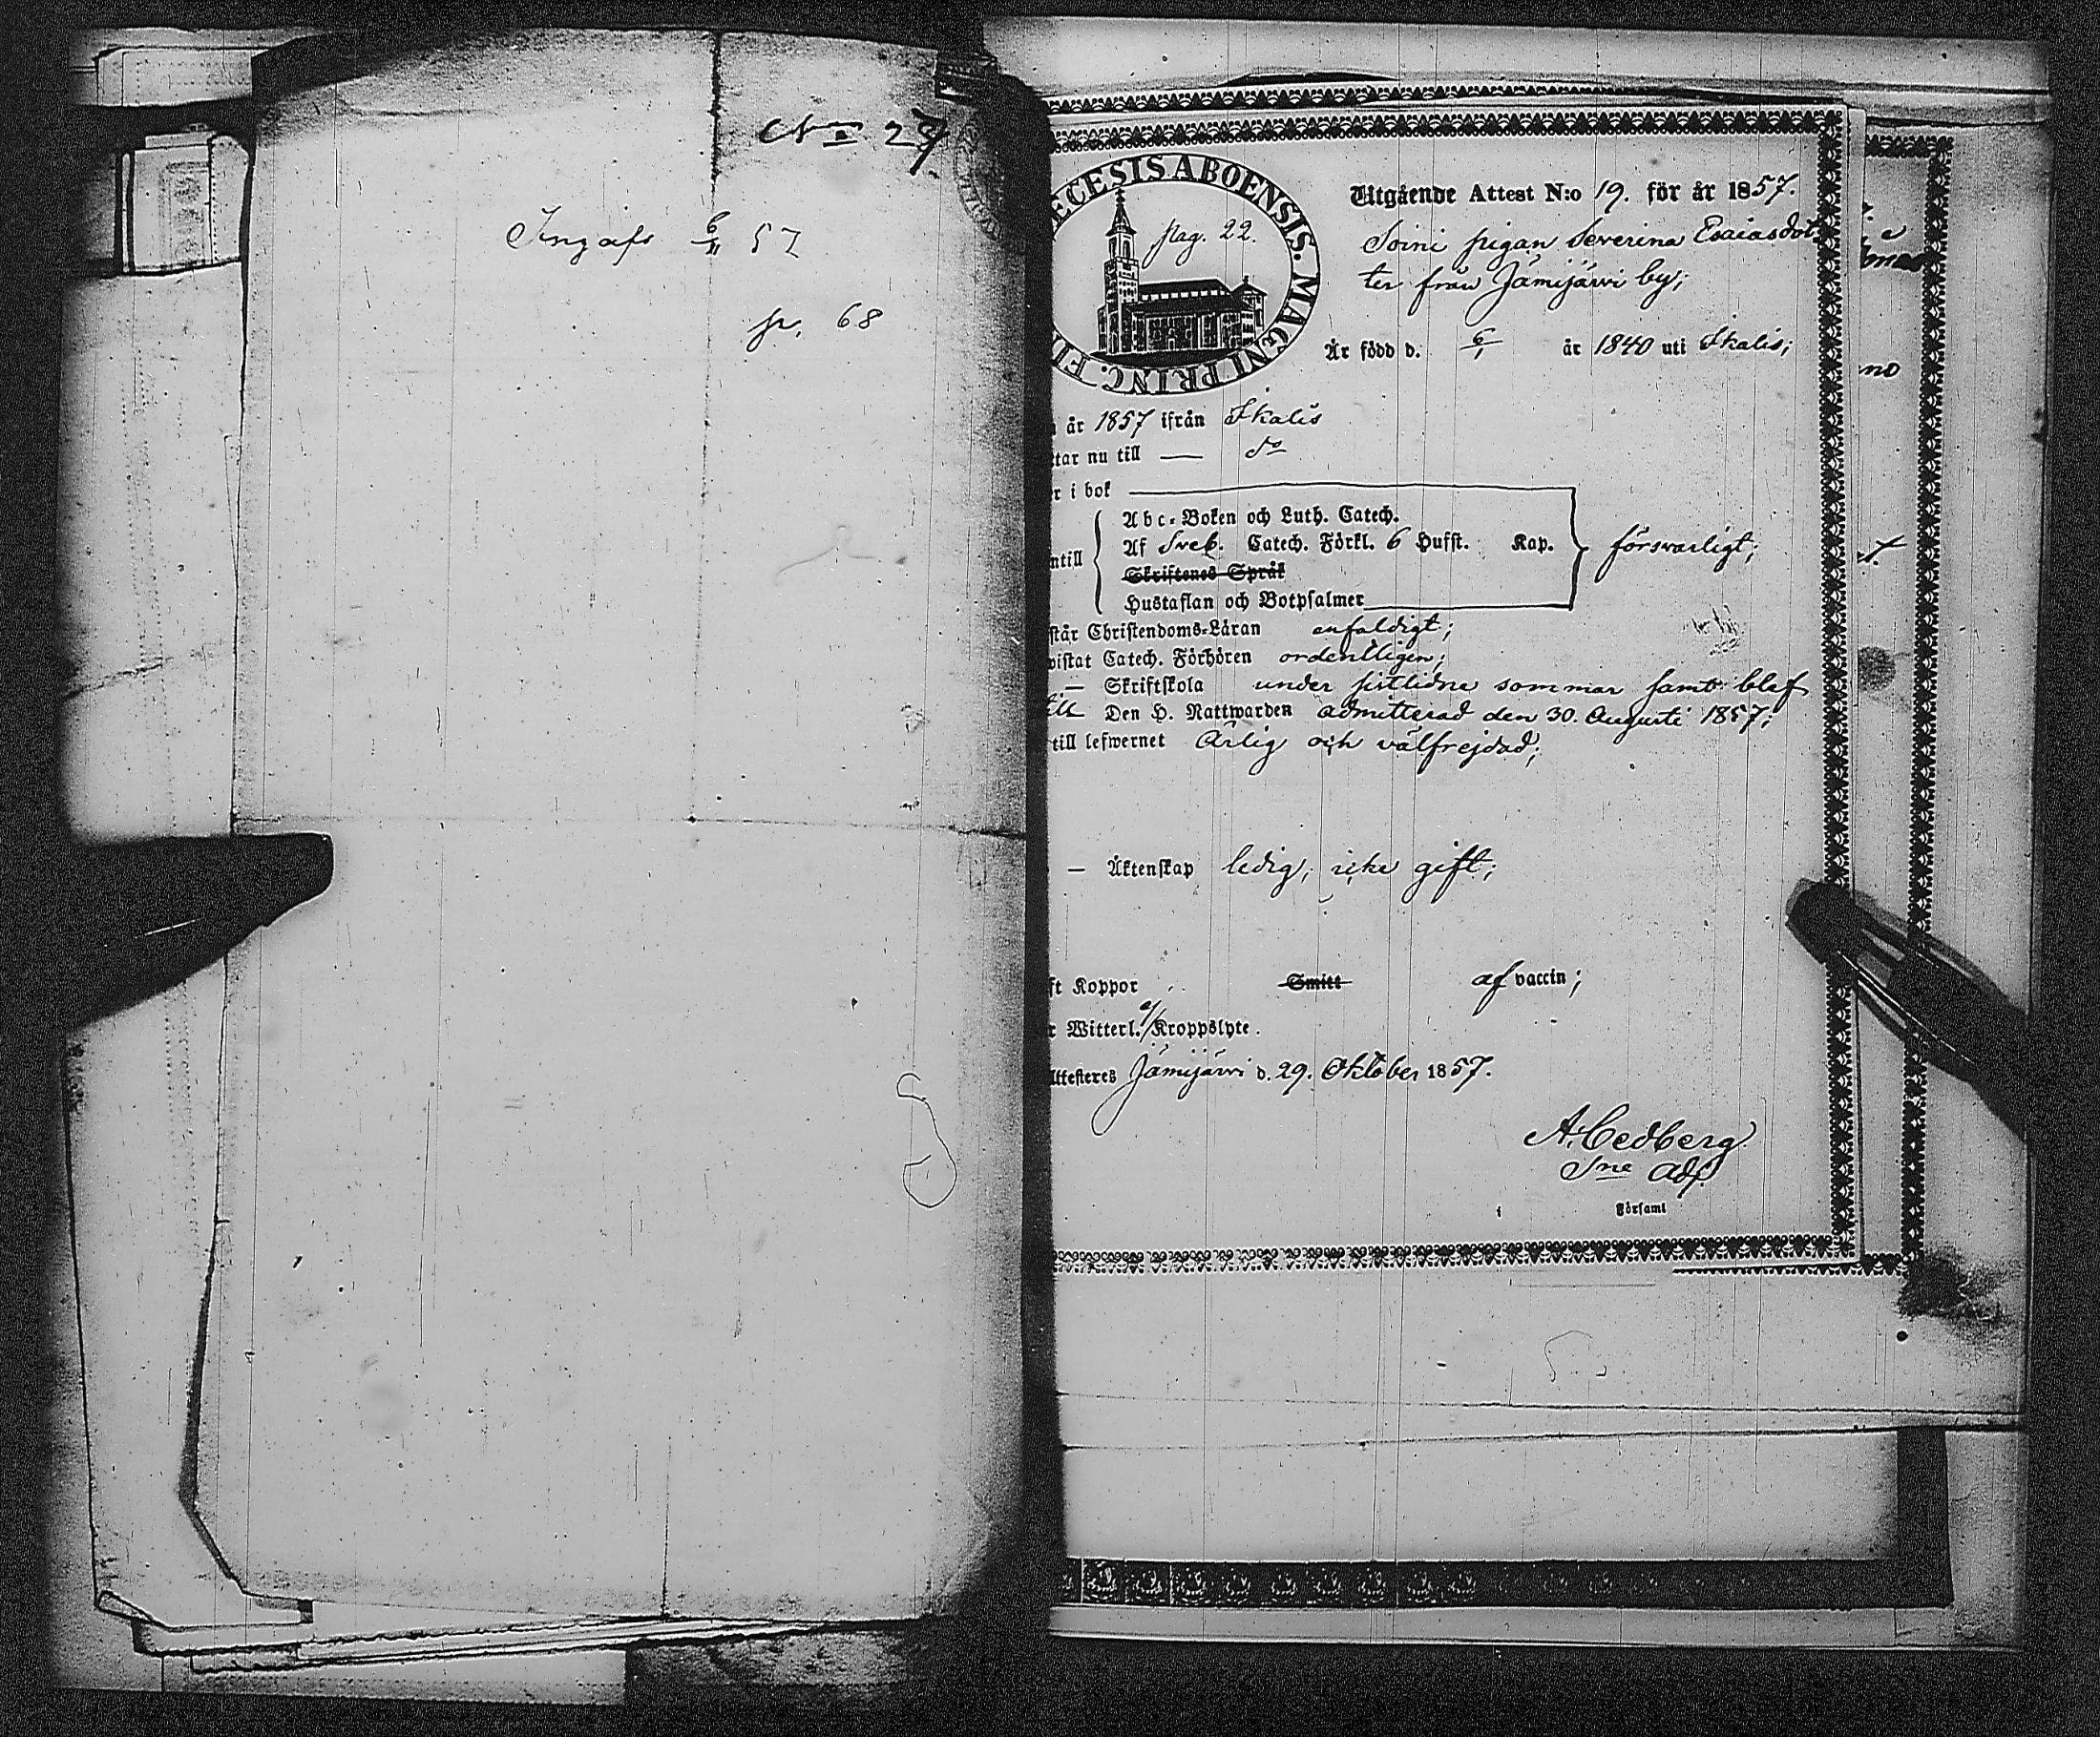 No 27
Ingafs 6/11 57
p. 68
ECESIS ABOENSIS. MAGNI PRINC. FI
pag. 22.
Utgående Attest N:o 19. för år 1857.
Soini pigan Severina Esaiasdot
ter från Jämijärvi by;
Är född d. 6/1 år 1840 uti Ikalis;
år 1857 ifrån Ikalis
tar nu till — do
r i bok
Abc-Boken och Luth. Catech.
ntill Af Sveb. Catech. Förkl. 6 Hufst. Kap. försvarligt;
Skriftenes Språk
Hustaflan och Botpsalmer
står Christendoms-Läran enfaldigt;
wistat Catech. Förhören ordentligen;
— Skriftskola under sistlidne sommar samt blef
till Den H. Nattwarden admitterad den 30. Augusti 1857;
till lefwernet Ärlig och välfrejdad;
— Äktenskap ledig, icke gift;
ft Koppor Smitt af vaccin;
r Witterl. Kroppslyte.
Attesteres Jämijärvi d. 29. Oktober 1857.
A. Cedberg
Sne Adj.
i Församl